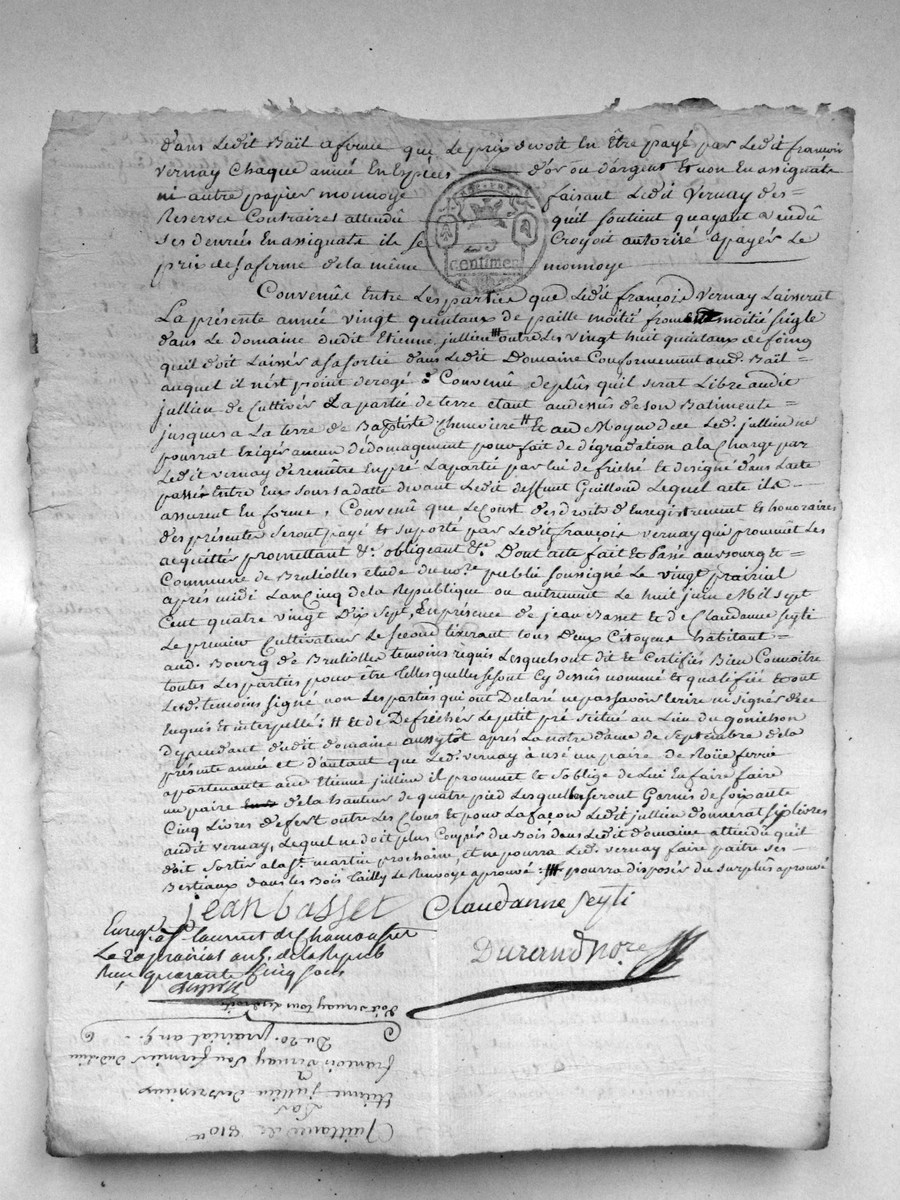 dans Ledit Bail a ferme que Le prix devoit En Être payé par Ledit françois
Vernay Chaque année En Espèces d'or ou d'argent Et non En assignats
ni autre papier monnoye faisant Ledit Vernay des
Reserves Contraires attendû quil soutient quayant vendû
ses denrées En assignats il se Croyoit autorisé a payer Le
prix de sa ferme de la même monnoye
centimes
Convenûs Entre Les parties que Ledit françois Vernay Laisserat
La présente année vingt quintaux de paille moitié froment moitié seigle
dans Le domaine dudit Etienne jullien outre Les vingt huit quintaux de foing
quil doit Laisser a sa sortie dans Ledit Domaine Conformement aud. Bail
auquel il n'est point derogé Convenû deplus quil serat Libre audit
jullien de Cultiver La partie de terre etant au dessus de son Batiment
jusques a La terre de Baptiste Chenevière Et au Moyen de ce Led. jullien ne
pourrat Exiger aucun dédomagement pour fait de dégradation a la Charge par
Ledit vernay de remettre En pré La partie par lui defriché Et designé dans Lacte
passé Entre Eux sous sa datte devant Ledit deffunt Guilloud Lequel acte ils
assurent En forme, Convenû que Le Coust des droits d'Enregistrement Et honoraires
des presentes seront payé et suporté par Ledit françois vernay qui promet Les
acquitter promettant &c. obligeant &c. Dont acte fait Et Passé au Bourg Et
Commune de Brullioles etude du no.re public soussigné Le vingt prairial
après midi L'an Cinq de la Republique ou autrement Le huit juin Mil sept
Cent quatre vingt Dix Sept, En présence de jean Basset et de Claudanne Seyti
Le premier Cultivateur Le second tisserant tous deux Citoyens habitant
aud. Bourg de Brullioles temoins requis Lesquels ont dit Et Certifiés Bien Connoitre
toutes Les parties pour être telles quelles sont Cy dessus nommé et qualifiée Et ont
Lesd. temoins signé non Les parties qui ont Declaré ne pas savoir Ecrire ni signer de ce
Enquis et interpellé: Et de Defricher Le petit pré scitué au Lieu du
dependant dudit domaine aussytot après La notre dame de Septembre de la
présente année et d'autant que Led. vernay a usé un paire de Roüe ferrée
apartenante aud. Etienne jullien il promet Et s'oblige de Lui En faire faire
un paire de la hauteur de quatre pied Lesquelles seront Garnis de soixante
Cinq Livres de fert outre Les Clous Et pour La façon Ledit jullien donnerat six livres
audit vernay, Lequel ne doit plus Couper de Bois dans Ledit domaine attendu quil
doit Sortir a la st. martin prochaine, et ne pourra Led. vernay faire paitre ses
Bestiaux dans les Bois tailly Le Renvoye aprouvé: pourra disposer du surplus aprouvé
jean basset Claudanne Seyti
Enregé a St. laurent de Chamousset
Le 20 prairial an 5. de la Repub
Reçu quarante Cinq sous
Durand no.re
doit vernay tous les droits
Du 20. prairial an 5.
françois Vernay son fermier
a
Etienne jullien
Par
Quittance de 810